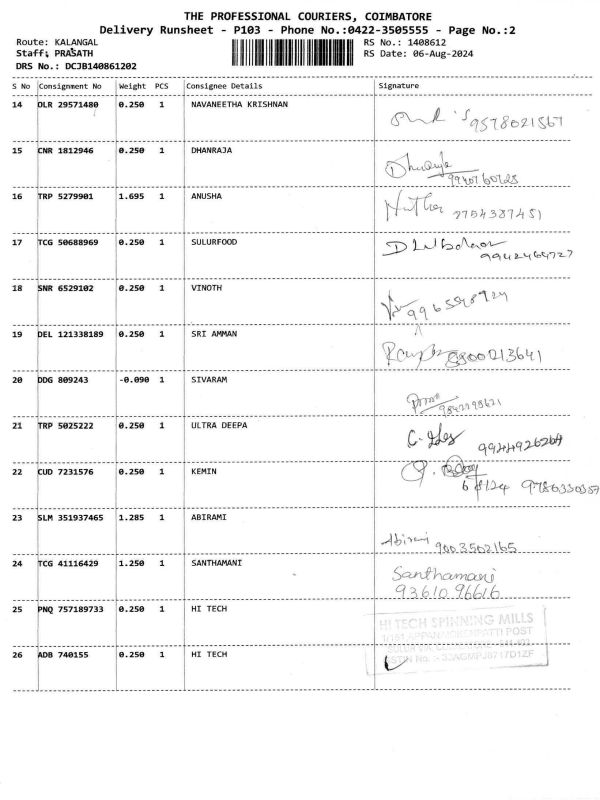 THE PROFESSIONAL COURIERS, COIMBATORE
Delivery Runsheet - P103 - Phone No.:0422-3505555 - Page No.:2
Route: KALANGAL RS No.: 1408612
Staff: PRASATH RS Date: 06-Aug-2024
DRS No.: DCJB140861202
S No Consignment No Weight PCS Consignee Details Signature
14 DLR 29571480 0.250 1 NAVANEETHA KRISHNAN
9578021567
15 CNR 1812946 0.250 1 DHANRAJA
Dhanraja
9940760728
16 TRP 5279901 1.695 1 ANUSHA
17 TCG 50688969 0.250 1 SULURFOOD
18 SNR 6529102 0.250 1 VINOTH
19 DEL 121338189 0.250 1 SRI AMMAN
8300213641
20 DDG 809243 -0.090 1 SIVARAM
21 TRP 5025222 0.250 1 ULTRA DEEPA
9944926264
22 CUD 7231576 0.250 1 KEMIN
6/8/24 9786330357
23 SLM 351937465 1.285 1 ABIRAMI
Abirami 9003502165
24 TCG 41116429 1.250 1 SANTHAMANI
Santhamani
9361096616
25 PNQ 757189733 0.250 1 HI TECH
HI TECH SPINNING MILLS
26 ADB 740155 0.250 1 HI TECH